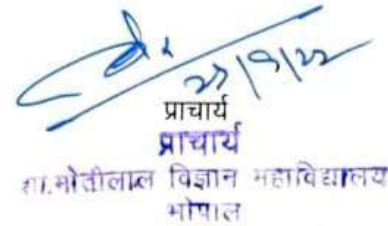 27/9/22
प्राचार्य
प्राचार्य
शा.मोतीलाल विज्ञान महाविद्यालय
भोपाल